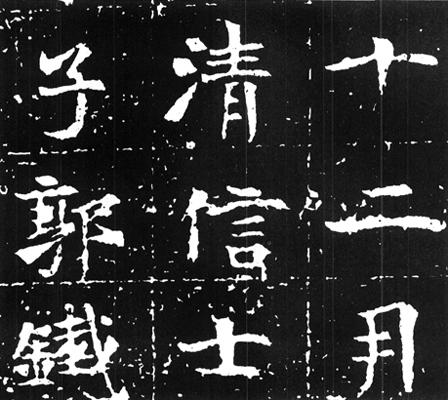 十二月
清信士
子郭鐵